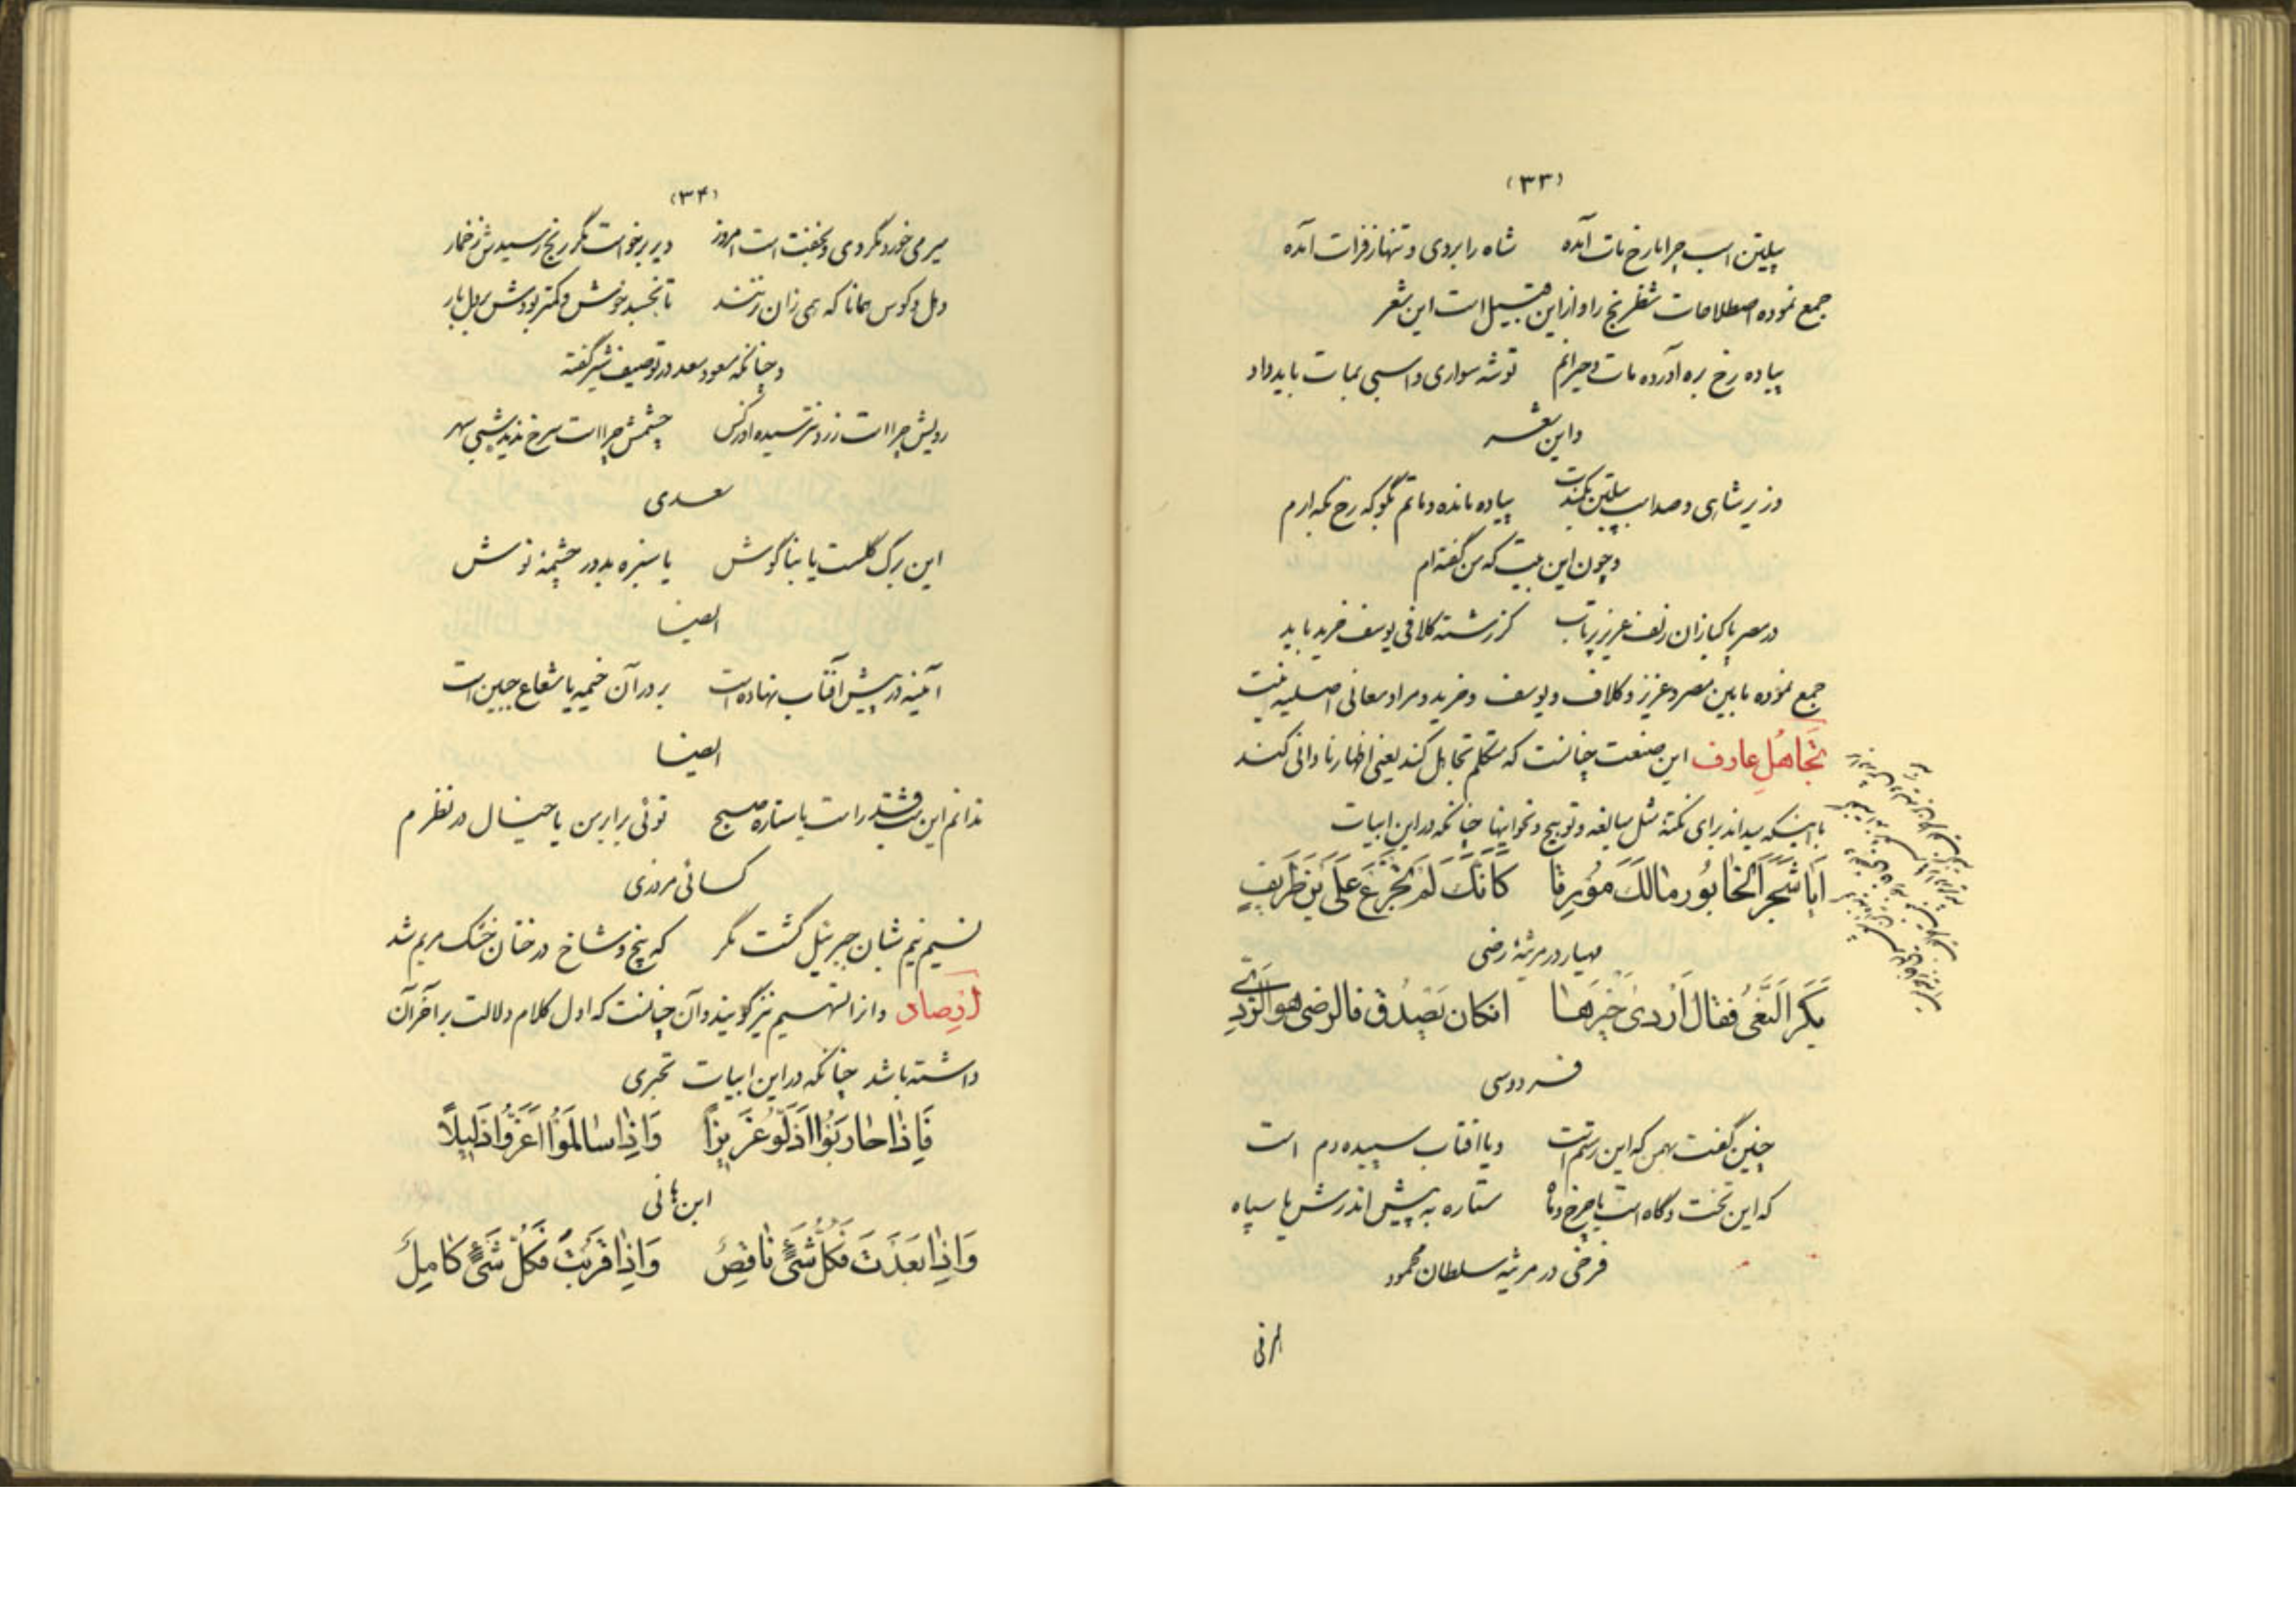 (۳۳)
پیلتن اسب چرا با رخ مات آمده شاه را بردی و تنها ز فرات آمده
جمع نموده اصطلاحات شطرنج را و از این قبیل است این شعر
پیاده رخ بره آورده مات و حیرانم تو شه سواری و اسبی بمات باید داد
و این شعر
وزیر شاهی و صد اسب پیلتن بکمندت پیاده مانده و ماتم بگو که رخ بکه ارم
و چون این بیت که من گفته‌ام
در مصر پاکبازان زلف عزیز پرتاب کز رشته کلافی یوسف خرید باید
جمع نموده ما بین مصر و عزیز و کلاف و یوسف و خرید و مراد معانی اصلیه نیست
تَجاهُلِ عارف این صنعت چنانست که متکلم تجاهل کند یعنی اظهار نادانی کند
با اینکه میداند برای نکتهٔ مثل مبالغه و توبیخ و نحو اینها چنانکه در این ابیات
اَیا شَجَرَ الخابُور مالَكَ مُورِقا كَاَنَّكَ لَم تَجزَع عَلَی بنِ طَریفٍ
مهیار در مرثیهٔ رضی
بَكَرَ النَّعِیُّ فقالَ اَردی خَیرها ان کان یَصدُق فالرضی هو الرَّدِی
فردوسی
چنین گفت بهمن که این رستم است و یا افتاب سپیده دم است
که این تخت و گاه است یا چرخ و ماه ستاره به پیش اندرش یا سپاه
فرخی در مرثیه سلطان محمود
(۳۴)
میر می خورد مگر دی و بخفتست امروز دیر برخواست مگر رنج رسیدش ز خمار
دهل و کوس همانا که همی زان نزنند تا بخسبد خوش و کمتر بودش بر دل بار
و چنانکه مسعود سعد در توصیف شیر گفته
رویش چرا است زرد نترسیده او ز کس چشمش چرا است سرخ ندیده شبی سهر
سعدی
این برگ گلست یا بناگوش یا سبزه بدور چشمهٔ نوش
ایضا
آینه در پیش آفتاب نهاده است بر در آن خیمه یا شعاع جبین است
ایضا
ندانم این شب قدر است یا ستاره صبح توئی برابر من یا خیال در نظرم
کسائی مروزی
نسیم نیم شبان جبرئیل گشت مگر که بیخ و شاخ درختان خشک مریم شد
اِرصاد و او را تسهیم نیز گویند و آن چنانست که اول کلام دلالت بر آخر آن
داشته باشد چنانکه در این ابیات بحتری
فَاِذا حارَبُوا اَذَلّوُ عَزیزاً وَاِذا سالَمَوُا اَعَزُّوا ذَلیلاً
ابن هانی
وَاِذا بَعَدتَ فَکُلُّ شَیءٍ ناقِصُ وَاِذا قَرُبتَ فَکُلُّ شَیءٍ کامِلُ